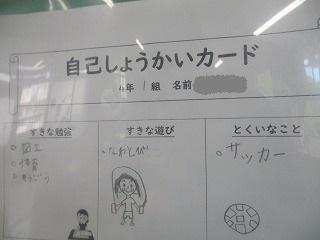 自己しょうかいカード
4年 1組 名前
すきな勉強
すきな遊び
とくいなこと
図工
体育
なわとび
サッカー